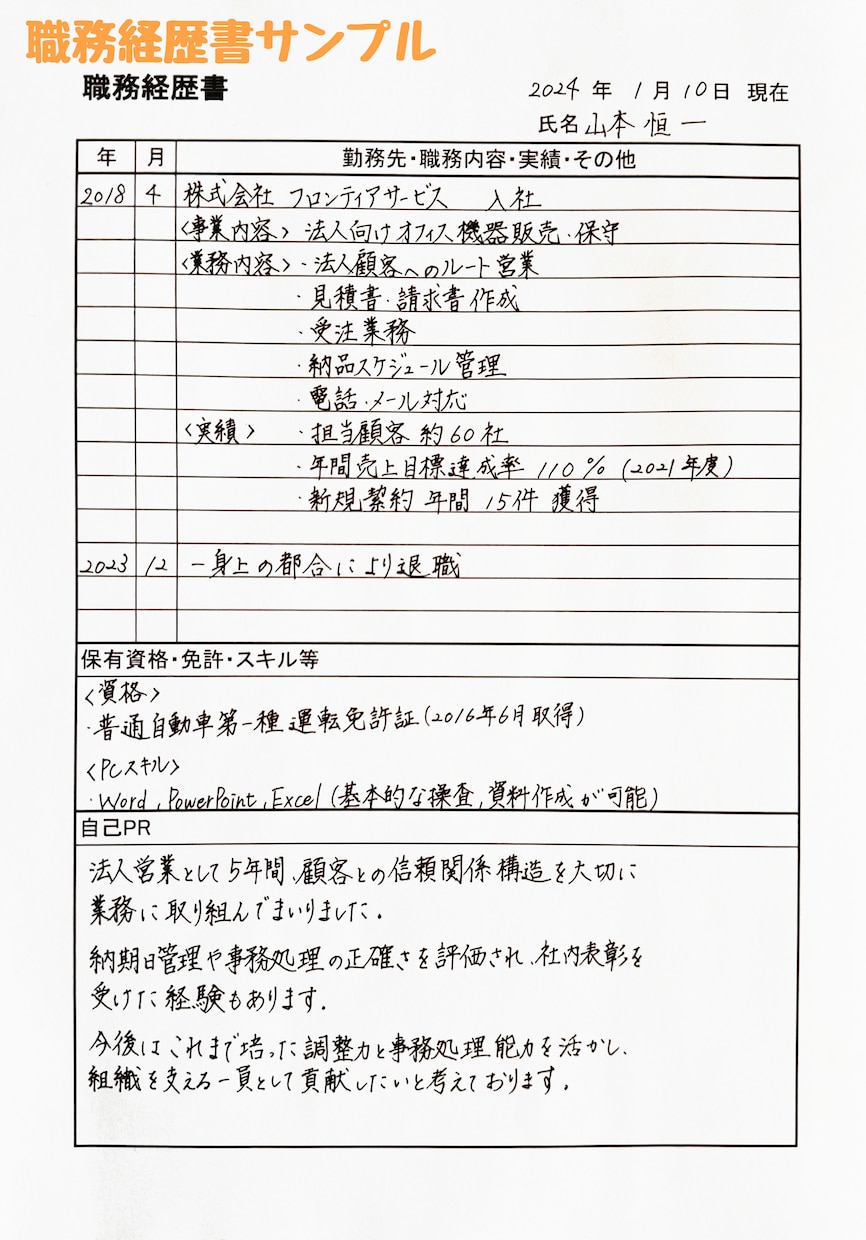 職務経歴書サンプル
職務経歴書
2024 年 1 月 10 日 現在
氏名 山本 恒一
年 月 勤務先・職務内容・実績・その他
2018 4 株式会社 フロンティアサービス 入社
<事業内容> 法人向けオフィス機器販売・保守
<業務内容>・法人顧客へのルート営業
・見積書・請求書作成
・受注業務
・納品スケジュール管理
・電話・メール対応
<実績> ・担当顧客 約60社
・年間売上目標達成率 110% (2021年度)
・新規契約 年間 15件 獲得
2023 12 一身上の都合により退職
保有資格・免許・スキル等
<資格>
・普通自動車第一種運転免許証(2016年6月取得)
<PCスキル>
・Word, PowerPoint, Excel (基本的な操査,資料作成が可能)
自己PR
法人営業として5年間、顧客との信頼関係構造を大切に
業務に取り組んでまいりました.
納期日管理や事務処理の正確さを評価され、社内表彰を
受けた経験もあります.
今後はこれまで培った調整力と事務処理能力を活かし、
組織を支える一員として貢献したいと考えております.